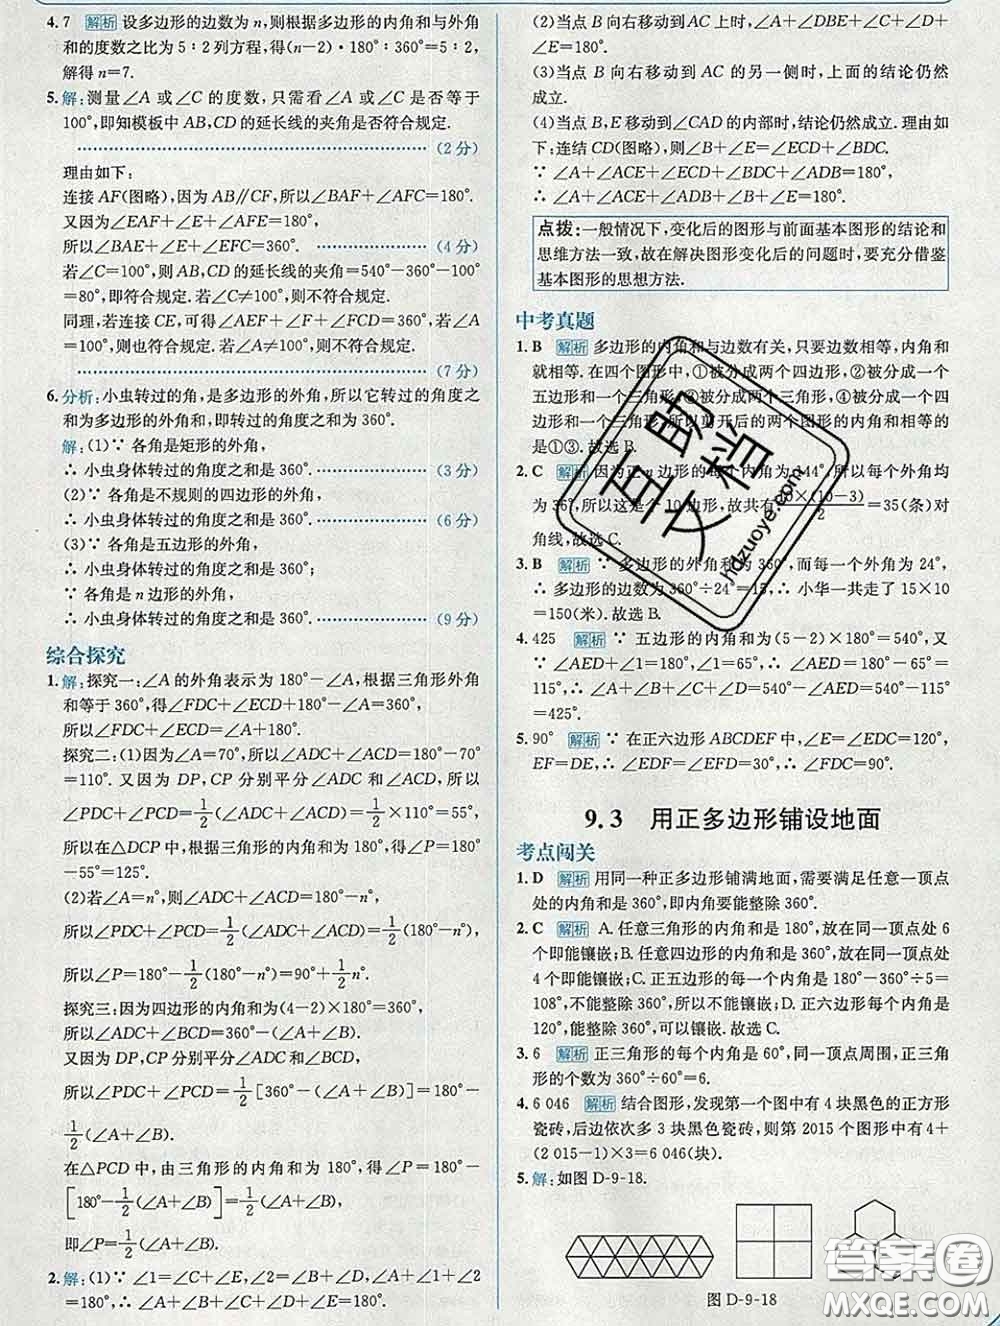 4. 7 解析 设多边形的边数为 n,则根据多边形的内角和与外角
和的度数之比为 5∶2 列方程,得(n-2)·180°∶360°=5∶2,
解得 n=7.
5. 解:测量∠A 或∠C 的度数,只需看∠A 或∠C 是否等于
100°,即知模板中 AB,CD 的延长线的夹角是否符合规定.
(2 分)
理由如下:
连接 AF(图略),因为 AB∥CF,所以∠BAF+∠AFC=180°.
又因为∠EAF+∠E+∠AFE=180°,
所以∠BAE+∠E+∠EFC=360°. (4 分)
若∠C=100°,则 AB,CD 的延长线的夹角=540°-360°-100°
=80°,即符合规定.若∠C≠100°,则不符合规定.
同理,若连接 CE,可得∠AEF+∠F+∠FCD=360°,若∠A=
100°,则也符合规定.若∠A≠100°,则不符合规定.
(7 分)
6. 分析:小虫转过的角,是多边形的外角,所以它转过的角度之
和为多边形的外角和,即转过的角度之和为 360°.
解:(1)∵ 各角是矩形的外角,
∴ 小虫身体转过的角度之和是 360°. (3 分)
(2)∵ 各角是不规则的四边形的外角,
∴ 小虫身体转过的角度之和是 360°. (6 分)
(3)∵ 各角是五边形的外角,
∴ 小虫身体转过的角度之和是 360°;
∵ 各角是 n 边形的外角,
∴ 小虫身体转过的角度之和是 360°. (9 分)
综合探究
1. 解:探究一:∠A 的外角表示为 180°-∠A,根据三角形外角
和等于 360°,得∠FDC+∠ECD+180°-∠A=360°,
所以∠FDC+∠ECD=∠A+180°.
探究二:(1)因为∠A=70°,所以∠ADC+∠ACD=180°-70°
=110°. 又因为 DP,CP 分别平分∠ADC 和∠ACD,所以
∠PDC+∠PCD=1/2(∠ADC+∠ACD)=1/2×110°=55°,
所以在△DCP 中,根据三角形的内角和为 180°,得∠P=180°
-55°=125°.
(2)若∠A=n°,则∠ADC+∠ACD=180°-n°,
所以∠PDC+∠PCD=1/2(∠ADC+∠ACD)=1/2(180°-n°),
所以∠P=180°-1/2(180°-n°)=90°+1/2n°.
探究三:因为四边形的内角和为(4-2)×180°=360°,
所以∠ADC+∠BCD=360°-(∠A+∠B).
又因为 DP,CP 分别平分∠ADC 和∠BCD,
所以∠PDC+∠PCD=1/2[360°-(∠A+∠B)]=180°-
1/2(∠A+∠B).
在△PCD 中,由三角形的内角和为 180°,得∠P=180°-
[180°-1/2(∠A+∠B)]=1/2(∠A+∠B),
即∠P=1/2(∠A+∠B).
2. 解:(1)∵ ∠1=∠C+∠E,∠2=∠B+∠D,∠A+∠1+∠2
=180°,∴ ∠A+∠B+∠C+∠D+∠E=180°.
(2)当点 B 向右移动到 AC 上时,∠A+∠DBE+∠C+∠D+
∠E=180°.
(3)当点 B 向右移动到 AC 的另一侧时,上面的结论仍然
成立.
(4)当点 B,E 移动到∠CAD 的内部时,结论仍然成立.理由如
下:连结 CD(图略),则∠B+∠E=∠ECD+∠BDC.
∵ ∠A+∠ACE+∠ECD+∠BDC+∠ADB=180°,
∴ ∠A+∠ACE+∠ADB+∠B+∠E=180°.
点拨:一般情况下,变化后的图形与前面基本图形的结论和
思维方法一致,故在解决图形变化后的问题时,要充分借鉴
基本图形的思想方法.
中考真题
1. B 解析 多边形的内角和与边数有关,只要边数相等,内角和
就相等.在四个图形中,①被分成两个四边形,②被分成一个
五边形和一个三角形,③被分成两个三角形,④被分成一个四
边形和一个三角形,所以剪开后的两个图形的内角和相等的
是①③.故选 B.
2. C 解析 因为正 n 边形的每个内角为 144°,所以每个外角均
为 36°,所以这是个 10 边形,故共有 ×(10-3)/2=35(条)对
角线,故选 C.
3. B 解析 ∵ 多边形的外角和为 360°,而每一个外角为 24°,
∴ 多边形的边数为 360°÷24°=15,∴ 小华一共走了 15×10
=150(米).故选 B.
4. 425 解析 ∵ 五边形的内角和为(5-2)×180°=540°,又
∵∠AED+∠1=180°,∠1=65°,∴ ∠AED=180°-65°=
115°,∴ ∠A+∠B+∠C+∠D=540°-∠AED=540°-115°
=425°.
5. 90° 解析 ∵ 在正六边形 ABCDEF 中,∠E=∠EDC=120°,
EF=DE,∴ ∠EDF=∠EFD=30°,∴ ∠FDC=90°.
9.3 用正多边形铺设地面
考点闯关
1. D 解析 用同一种正多边形铺满地面,需要满足任意一顶点
处的内角和是 360°,即内角要能整除 360°.
2. C 解析 A. 任意三角形的内角和是 180°,放在同一顶点处 6
个即能镶嵌;B. 任意四边形的内角和是 360°,放在同一顶点处
4 个即能镶嵌;C. 正五边形的每一个内角是 180°-360°÷5=
108°,不能整除 360°,所以不能镶嵌;D. 正六边形每个内角是
120°,能整除 360°,可以镶嵌.故选 C.
3. 6 解析 正三角形的每个内角是 60°,同一顶点周围,正三角
形的个数为 360°÷60°=6.
4. 6 046 解析 结合图形,发现第一个图中有 4 块黑色的正方形
瓷砖,后边依次多 3 块黑色瓷砖,则第 2015 个图形中有 4+
(2 015-1)×3=6 046(块).
5. 解:如图 D-9-18.
图 D-9-18
互助文档
hdzuoye.com
答案圈
MXQE.COM